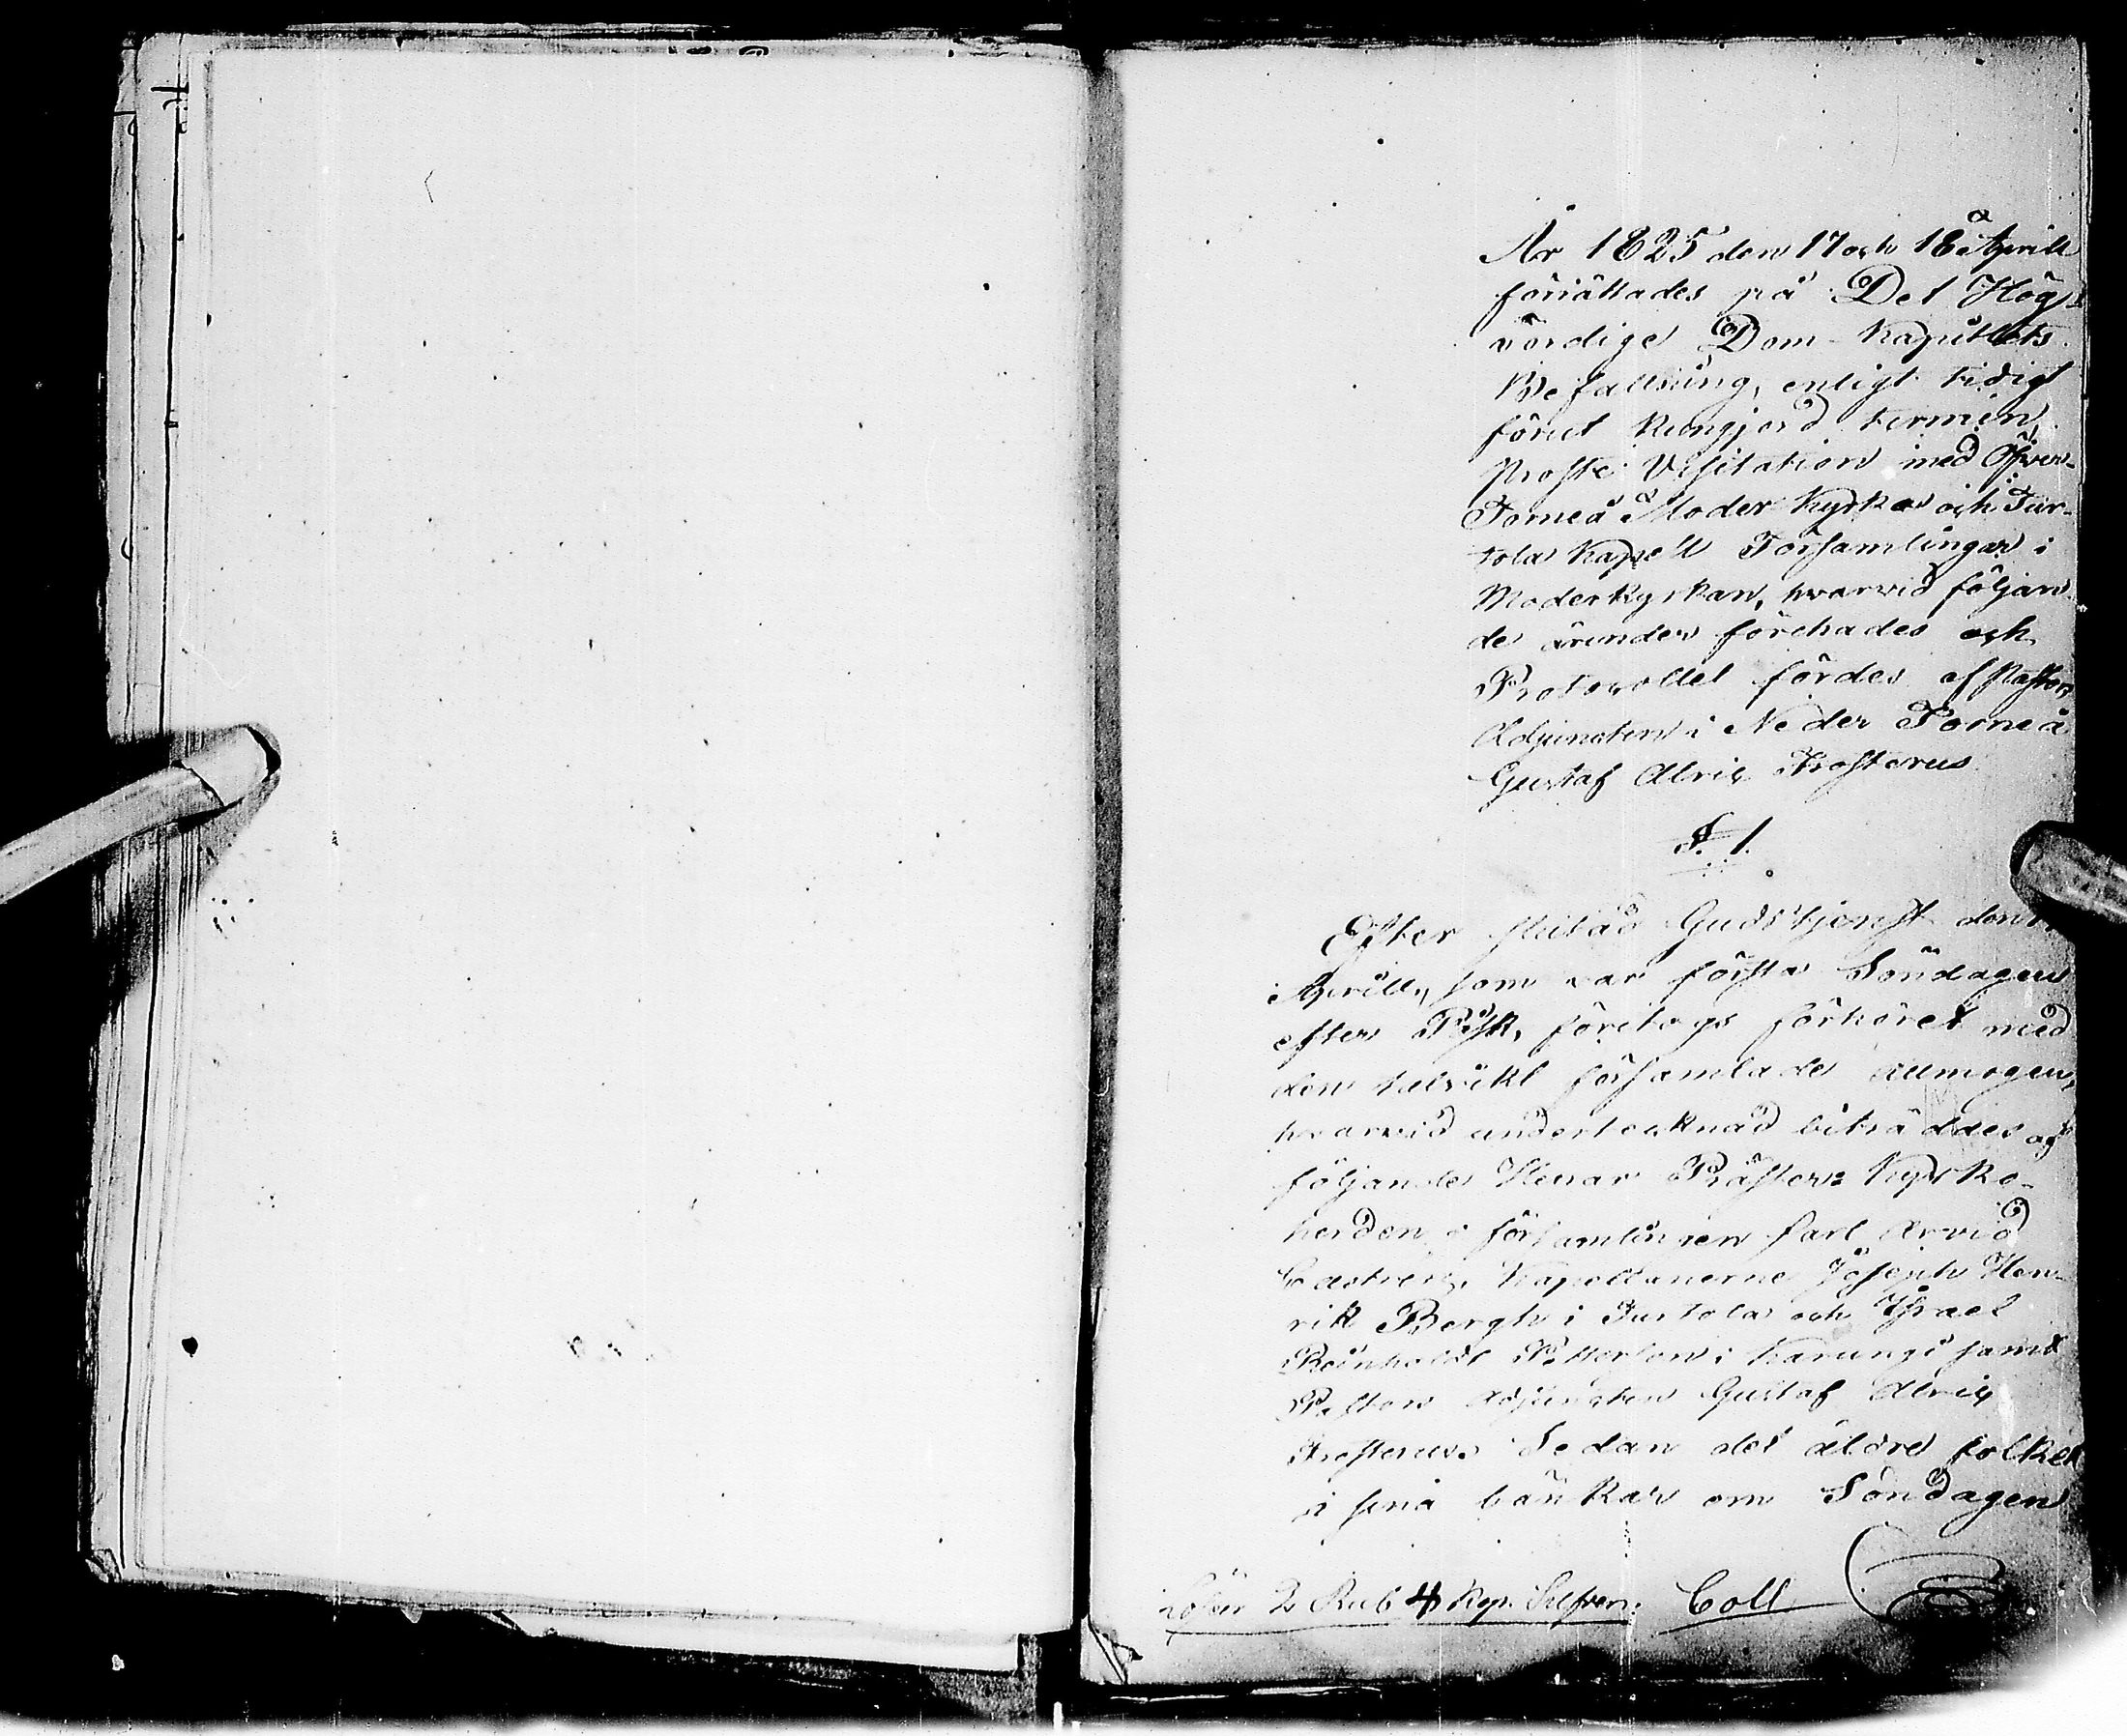 År 1825 den 17 och 18 Aprill
förrättades på Det Hög-
vördige Dom-Kapittlets
Befallning, enligt tidigt
förut kungjord termin,
Proste Visitation med Öfver-
Torneå Moder Kyrko och Tur-
tola Kapell Församlingar i
Moderkyrkan, hvarvid följan-
de ärender förehades och
Protocollet fördes af Pastors
Adjuncten i Neder Torneå
Gustaf Ulric Frosterus
§. 1.
Efter slutad Gudstjenst den
Aprill, som var första Söndagen
efter Påsk, företogs förhöret med
den talrikt församlade Allmogen,
hvarvid undertecknad biträddes af
följande Herrar Präster: Kyrko-
herden i församlingen Carl Arvid
Castrén, Kapellanerne Joseph Hen-
rik Bergh i Turtola och Israel
Reinholdt Petterson i Karungi samt
Pastors Adjuncten Gustaf Ulric
Frosterus. Sedan det äldre folket
i sina bänkar om Söndagen
Lösen 2 Rub 4 Kop. Silfver. Coll